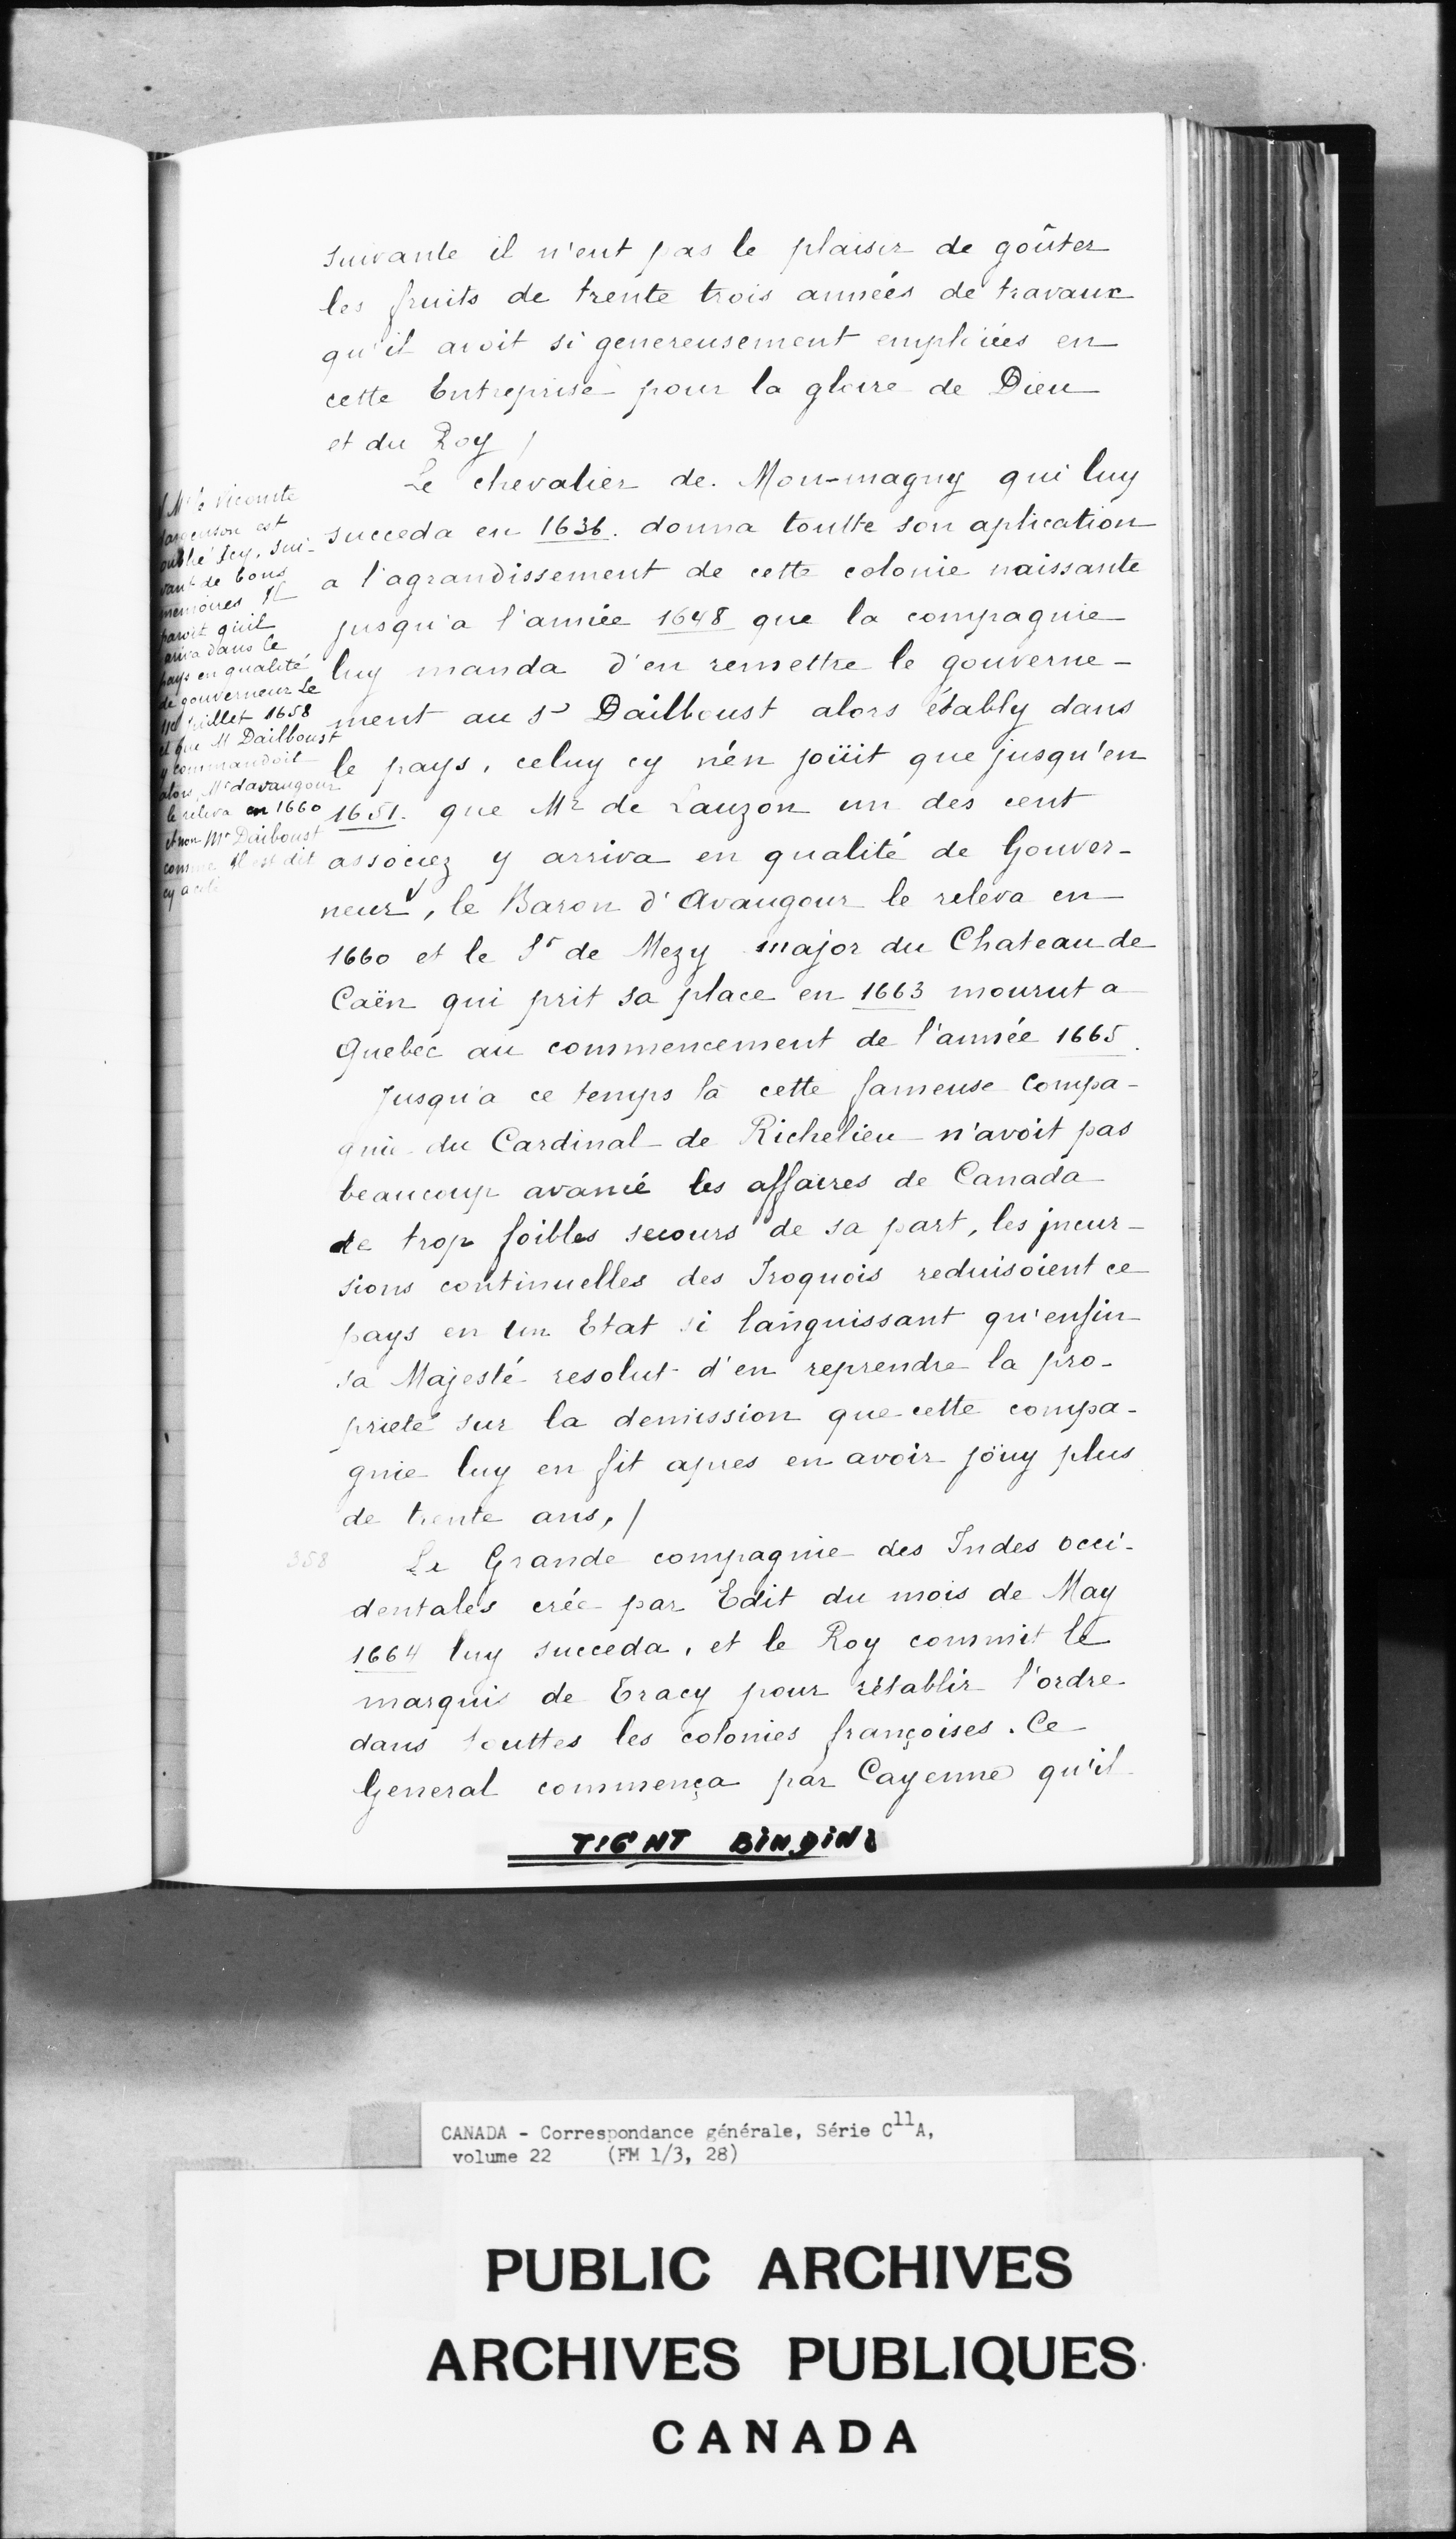 suivante il n'eut pas le plaisir de goûter
les fruits de trente trois années de travaux
qu'il avoit si genereusement emploiées en
cette Entreprise pour la gloire de Dieu
et du Roy /
Le chevalier de Mon-magny qui luy
succeda en 1636. donna toutte son aplication
a l'agrandissement de cette colonie naissante
jusqu'a l'année 1648 que la compagnie
luy manda d'en remettre le gouverne-
ment au Sr Dailboust alors établÿ dans
le pays, celuy cy n'en joüit que jusqu'en
1651. que Mr de Lauzon un des cent
associez y arriva en qualité de Gouver-
neur, le Baron d'Avaugour le releva en
1660 et le Sr de Mezy major du Chateau de
Caën qui prit sa place en 1663 mourut a
Quebec au commencement de l'année 1665.
Jusqu'a ce temps là cette fameuse Compa-
gnie du Cardinal de Richelieu n'avoit pas
beaucoup avancé les affaires de Canada
de trop foibles secours de sa part, les jncur-
sions continuelles des Iroquois reduisoient ce
pays en un Etat si languissant qu'enfin
sa Majesté resolut d'en reprendre la pro-
prieté sur la demission que cette compa-
gnie luy en fit apres en avoir jöuy plus
de trente ans, /
358
La Grande compagnie des Indes occi-
dentales crée par Edit du mois de May
1664 luy succeda, et le Roy commit le
marquis de Tracy pour rétablir l'ordre
dans touttes les colonies françoises. Ce
General commença par Cayenne qu'il
/ Mr le vicomte
dargenson est
oublié Icy, sui-
vant de bons
memoires Il
paroit qu'il
ariva dans le
pays en qualité
de gouverneur Le
juillet 1658
et que M Dailboust
y commandoit
alors, Mr davaugour
le releva en 1660
et non Mr Dailboust
comme Il est dit
cy a coté
TIGHT BINDING
CANADA - Correspondance générale, Série C11A,
volume 22 (FM 1/3, 28)
PUBLIC ARCHIVES
ARCHIVES PUBLIQUES
CANADA